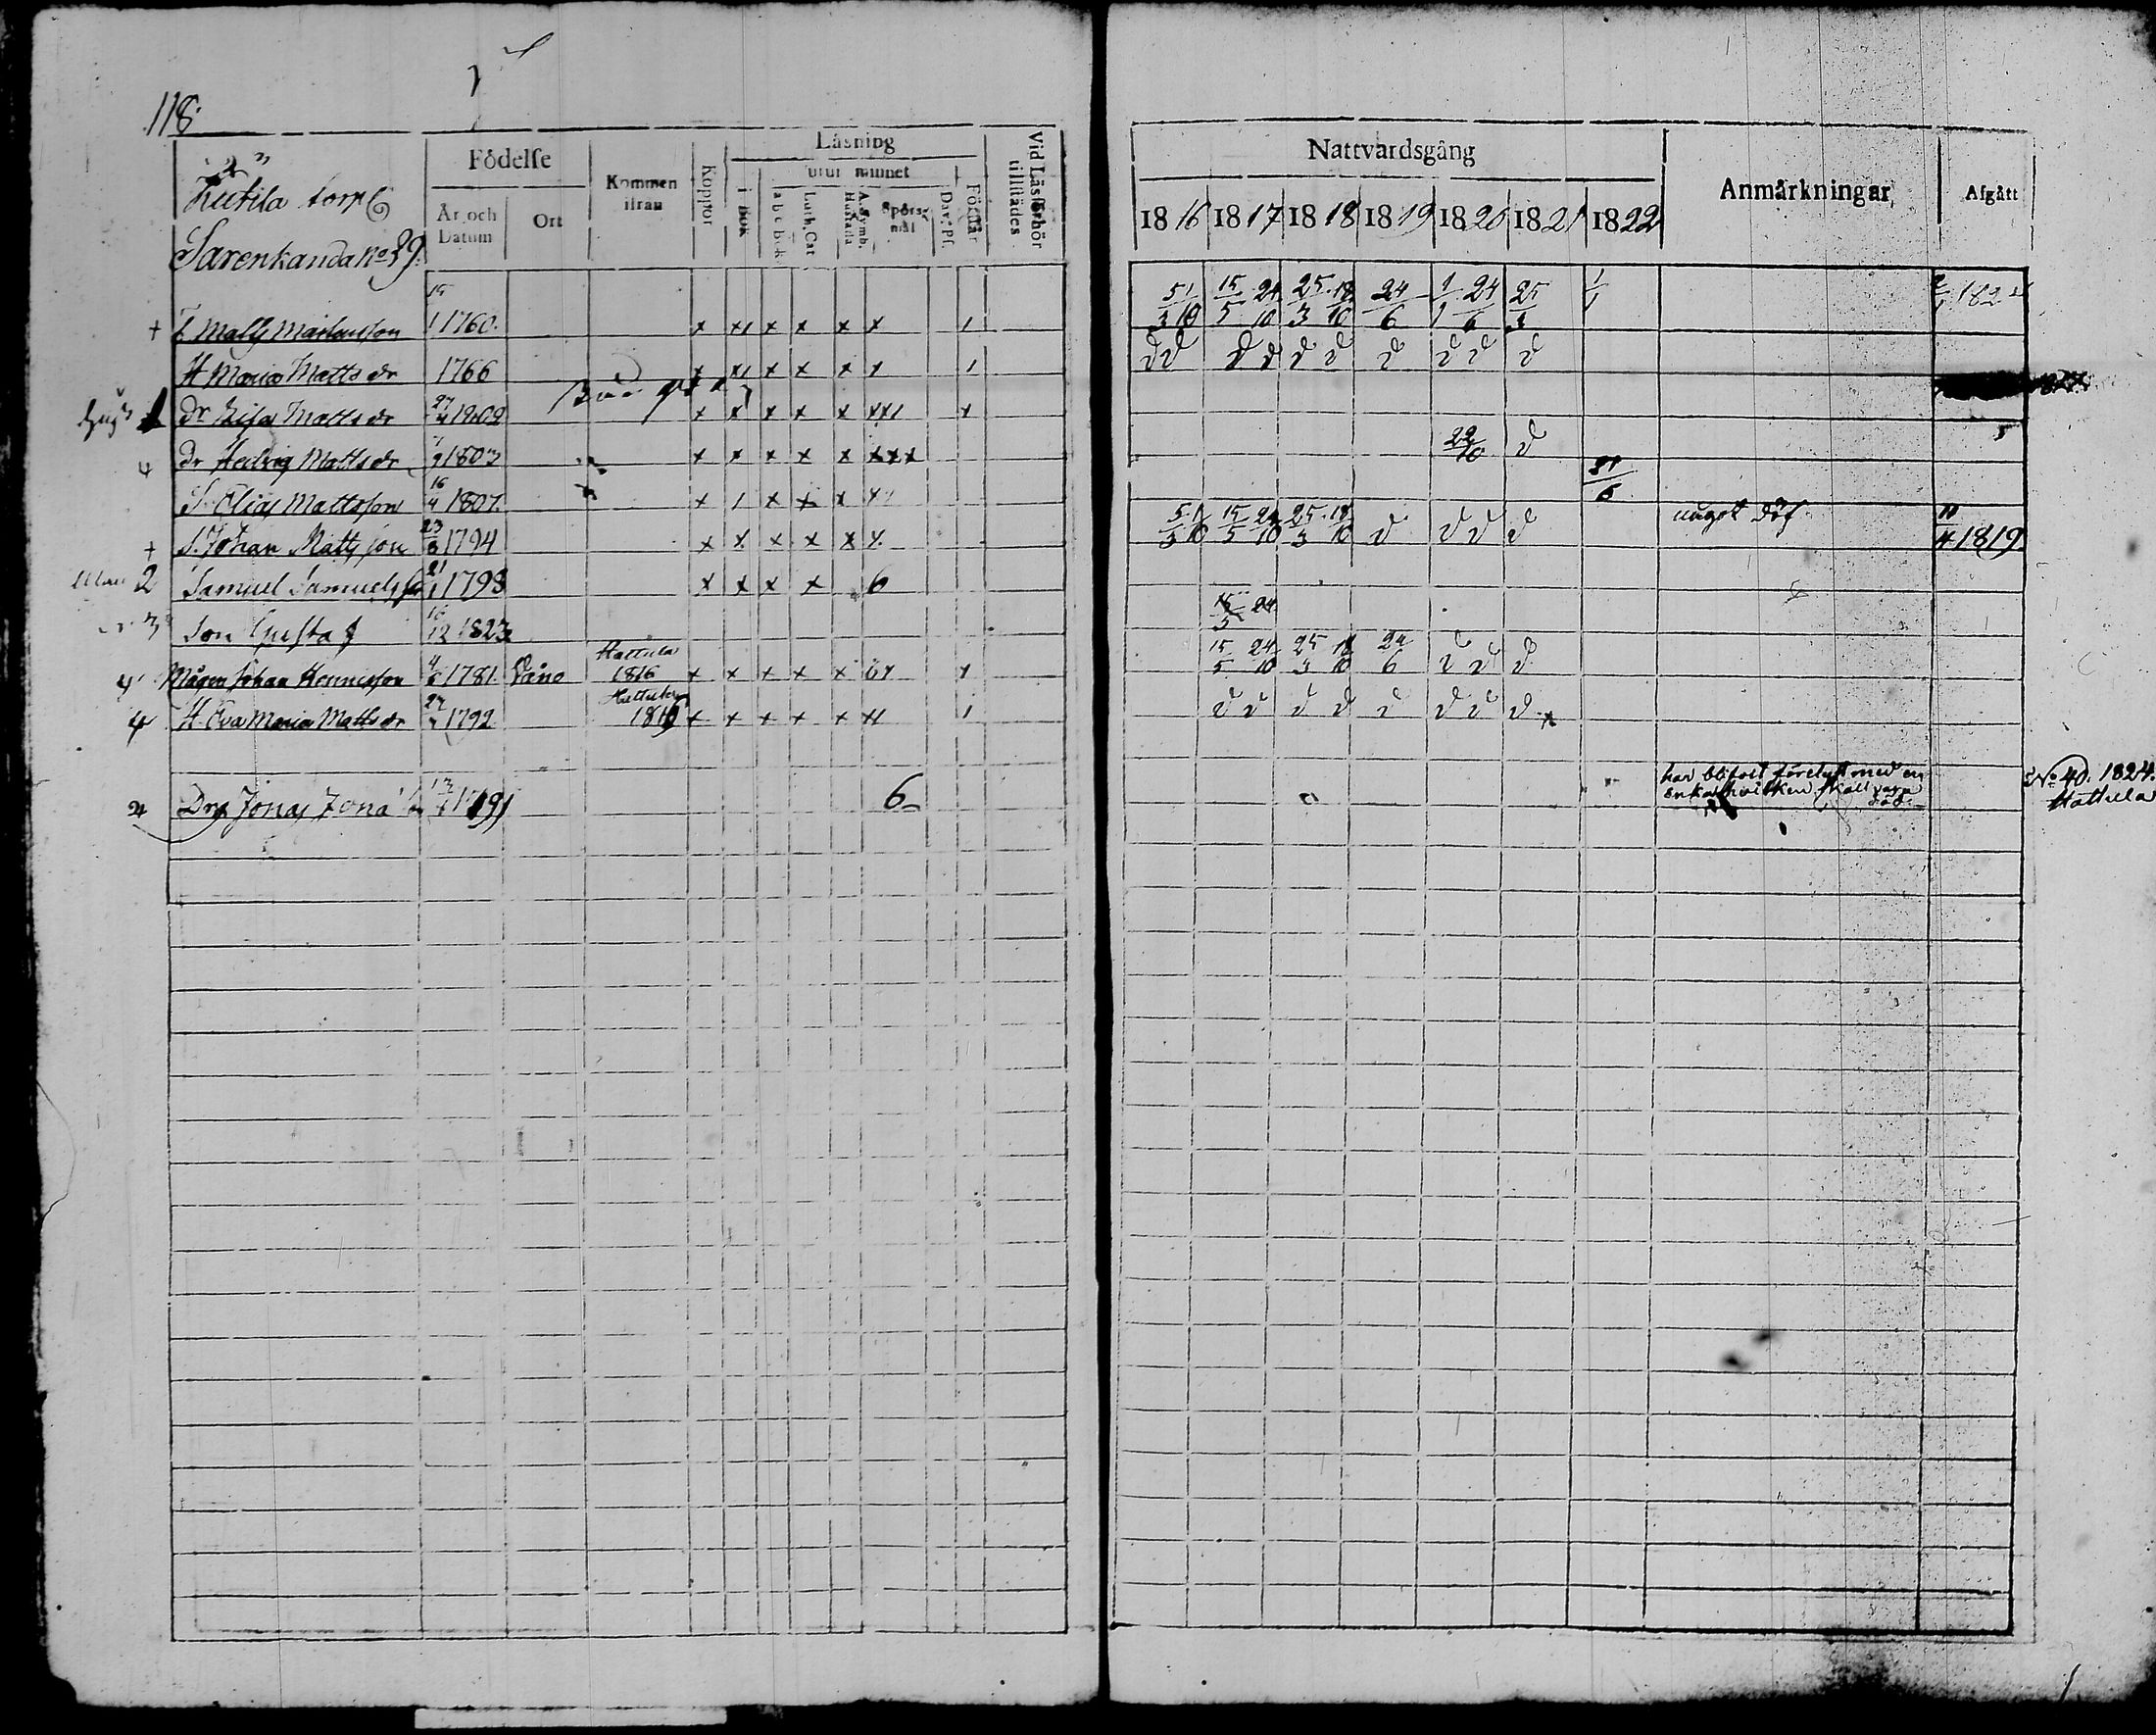 118.
Kutila torp
Sarenkanda No 39.
Födelse
År och Datum
Ort
Kommen ifrån
Koppor
Läsning
i Bok
utur minnet
a b c bok
Luth. Cat
A. Symb. Hustafla
Spörsmål
Dav. Ps.
Förstår
Vid Läsförhör tillstädes
Nattvardsgång
1816 1817 1818 1819 1820 1821 1822
Anmärkningar
Afgått
+ Matts 1 1760. x x1 x x x x 1
5/3 1/10 15/5 24/10 25/3 18/10 24/6 1/1 24/6 25/3 1/1
H Maria Matts dr 1766 x x1 x x x x 1
D D D D D D D D D D
Dr Lisa Matts dr 27 1802 x x x x x xx1 x
Dr Hedvig Matts dr 1803 x x x x x xxx
22/10 D
S. Elias Mattsson 16/4 1807. x 1 x x x x1
31/6
+ S. Johan Mattsson 23/3 1794 x x x x x x
5/3 1/10 15/5 24/10 25/3 18/10 D D D D
något döf 11/4 1819.
2 Samuel Samuelss 21/1 1798 x x x x 6
3 Son Gustaf 16/12 1823
15/5 24
4 Mågen Johan Hennicsson 4/6 1781. Våno Hattula 1816 x x x x x 61 x
15/5 24/10 25/3 18/10 24/6 D D D
4 H. Eva Maria Matts dr 27 1792 Hattula 1816 x x x x x x1 1
D D D D D D D D x
Drg Jonas Jona 6
har blifvit förelyst med en
Enka hvilken skall vara
död.
No 40. 1824.
Hattula